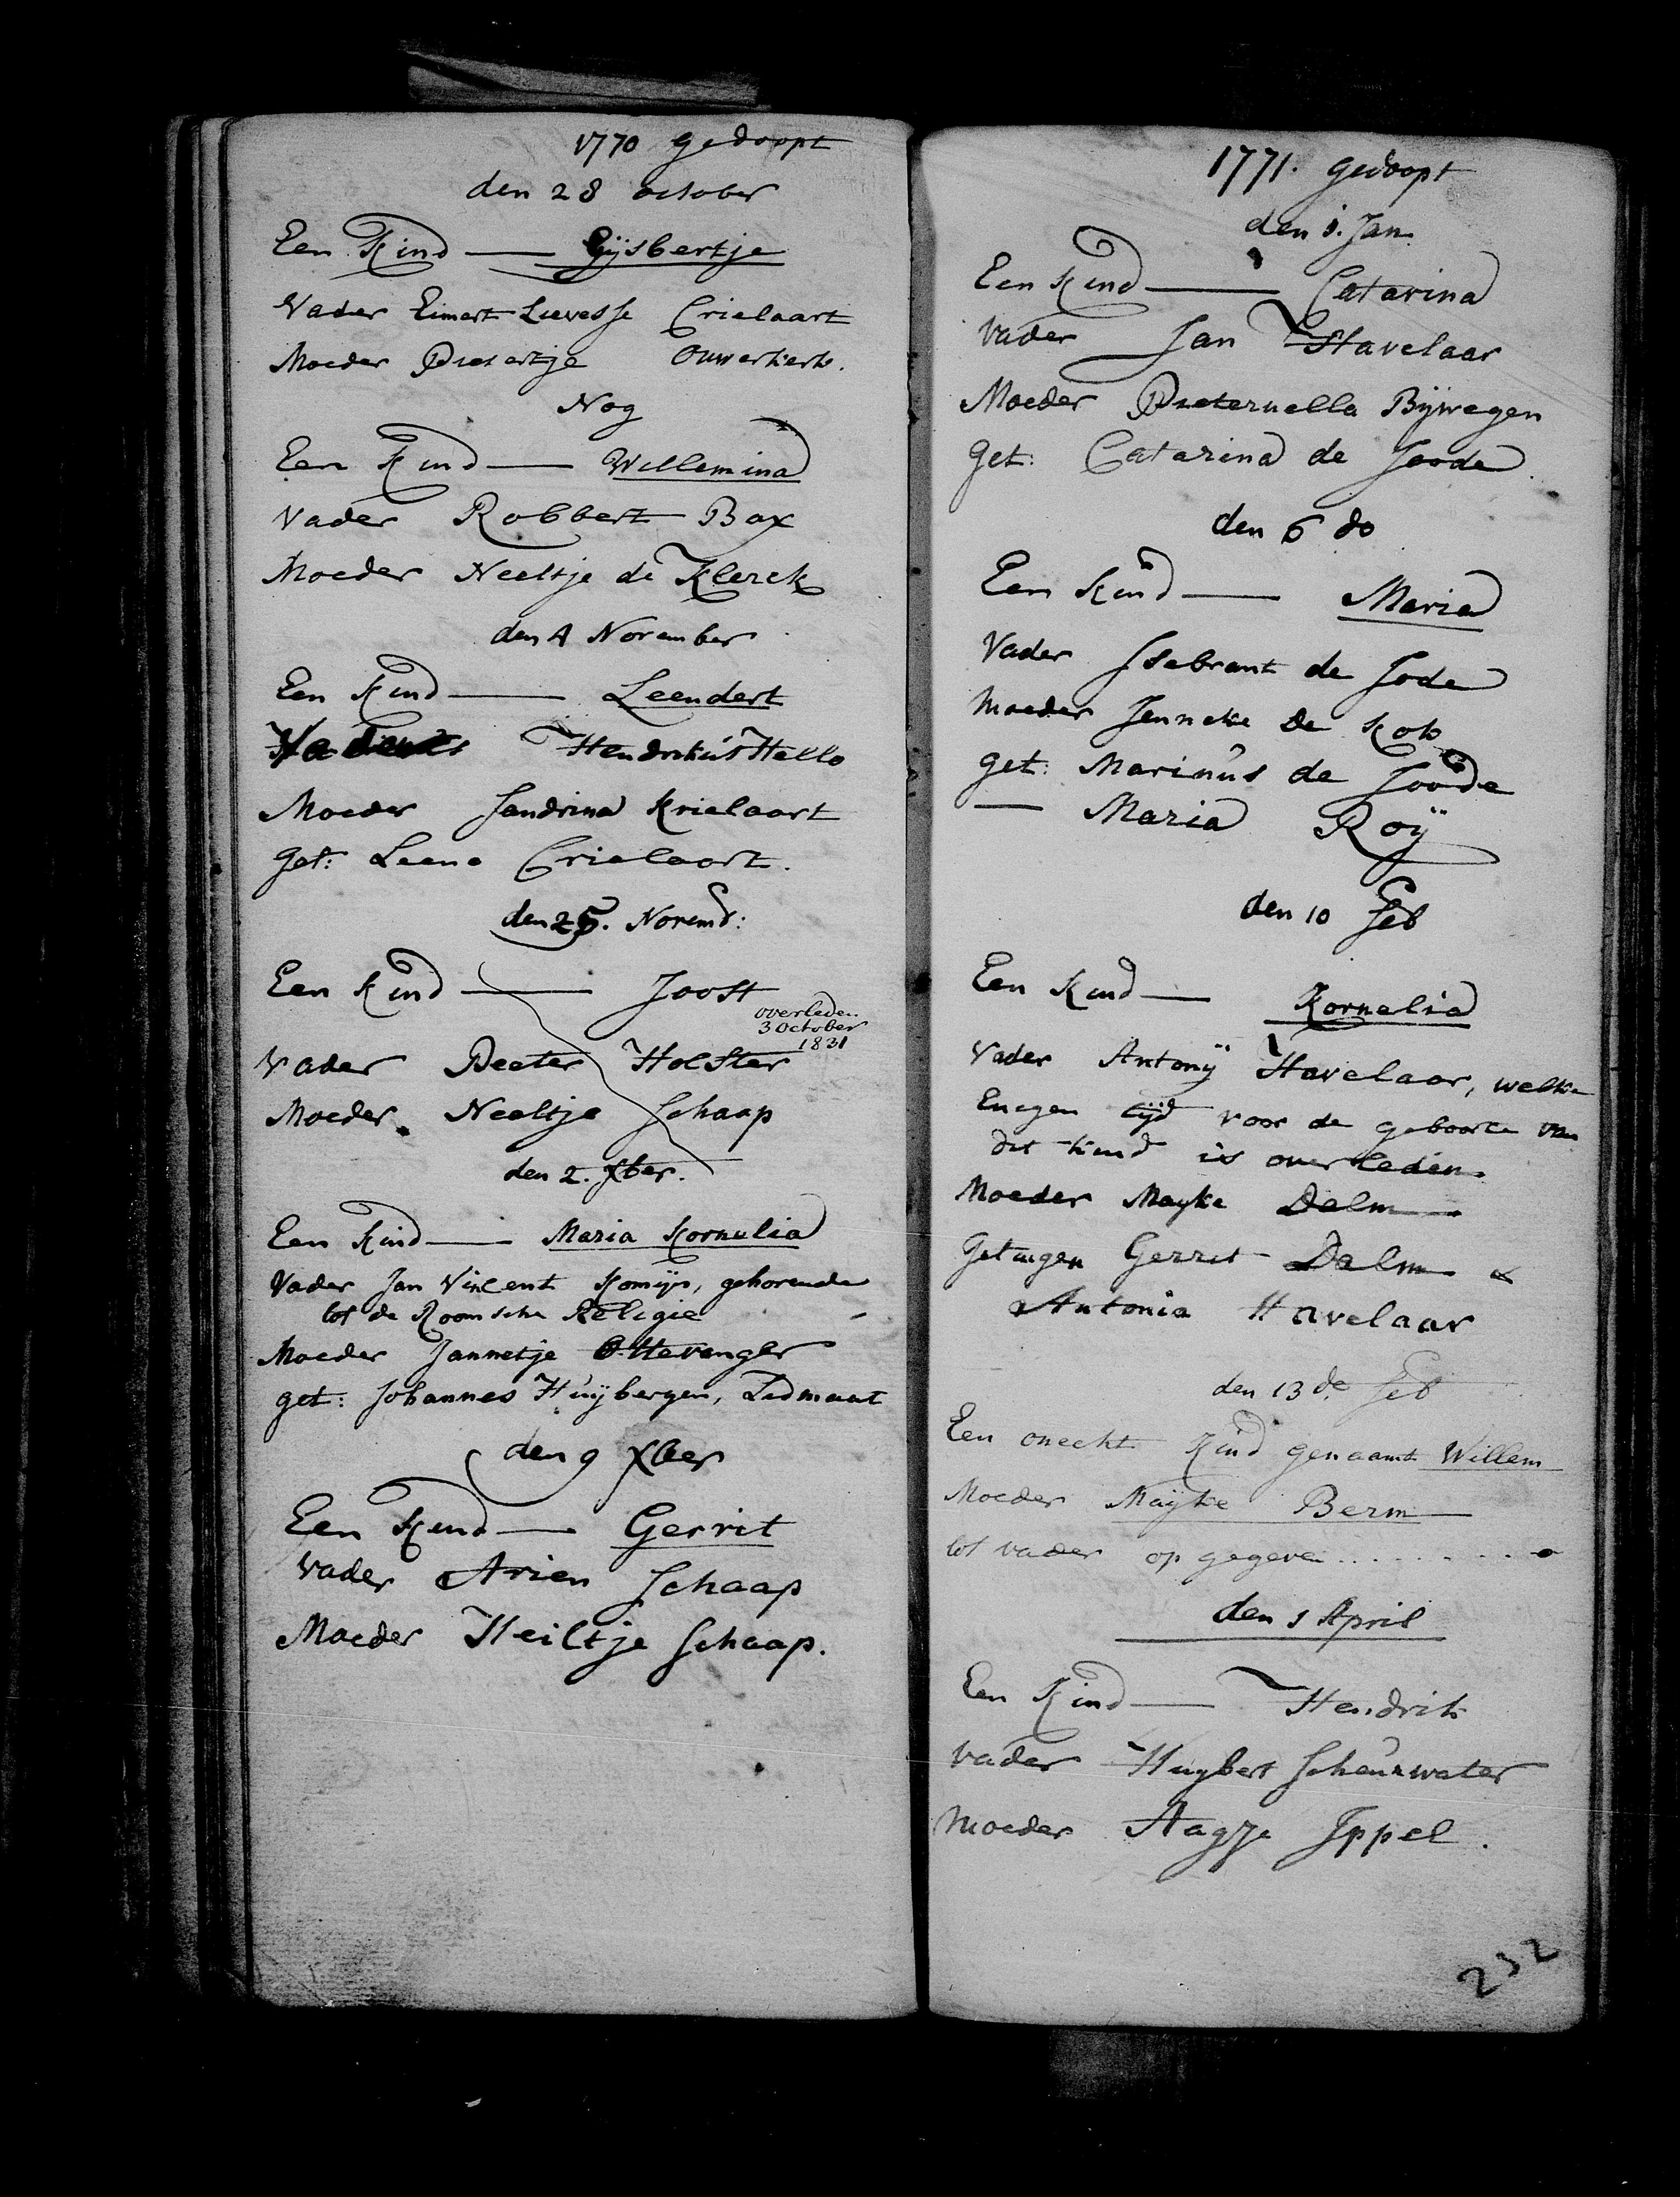 1770 gedoopt
den 28 october
Een Kind — Gijsbertje
Vader Eimert Leevesse Crielaart
Moeder Pietertje Ouwerkerk.
Nog
Een Kind — Willemina
Vader Robbert Bax
Moeder Neeltje de Klerck
den 4 November
Een Kind — Leendert
Vader Hendrikus Hello
Moeder Sandrina Krielaart
Get: Leena Crielaart.
den 25. Novemb:
Een Kind — Joost
overleden
3 October
1831
Vader Peeter Holster
Moeder Neeltje Schaap
den 2. Xber.
Een Kind — Maria Kornelia
Vader Jan Vincent Komijs, gehorende
tot de Roomsche Religie
Moeder Jannetje Ottevanger
get: Johannes Huijbergen, Lidmaat
den 9 Xber
Een Kind — Gerrit
Vader Arien Schaap
Moeder Heiltje Schaap.
1771. gedoopt
den 1. Jan.
Een Kind — Catarina
Vader Jan Havelaar
Moeder Pieternella Bijwegen
Get: Catarina de Joode.
den 6 do
Een Kind — Maria
Vader Isebrant de Jode
Moeder Jenneke de Kok
get: Marinus de Joode
— Maria Roij
den 10 Feb
Een Kind — Kornelia
Vader Antonij Havelaar, welke
Enegen tijd voor de geboorte van
dit kind is overleden.
Moeder Mayke Dalm
Getuigen Gerrit Dalm &
Antonia Havelaar
den 13 de Feb
Een onecht Kind genaamt Willem
Moeder Maijke Berm
tot vader op gegeven .........
den 1 April
Een Kind — Hendrik
Vader Huybert Scheurwater
Moeder Aagje Ippel.
232